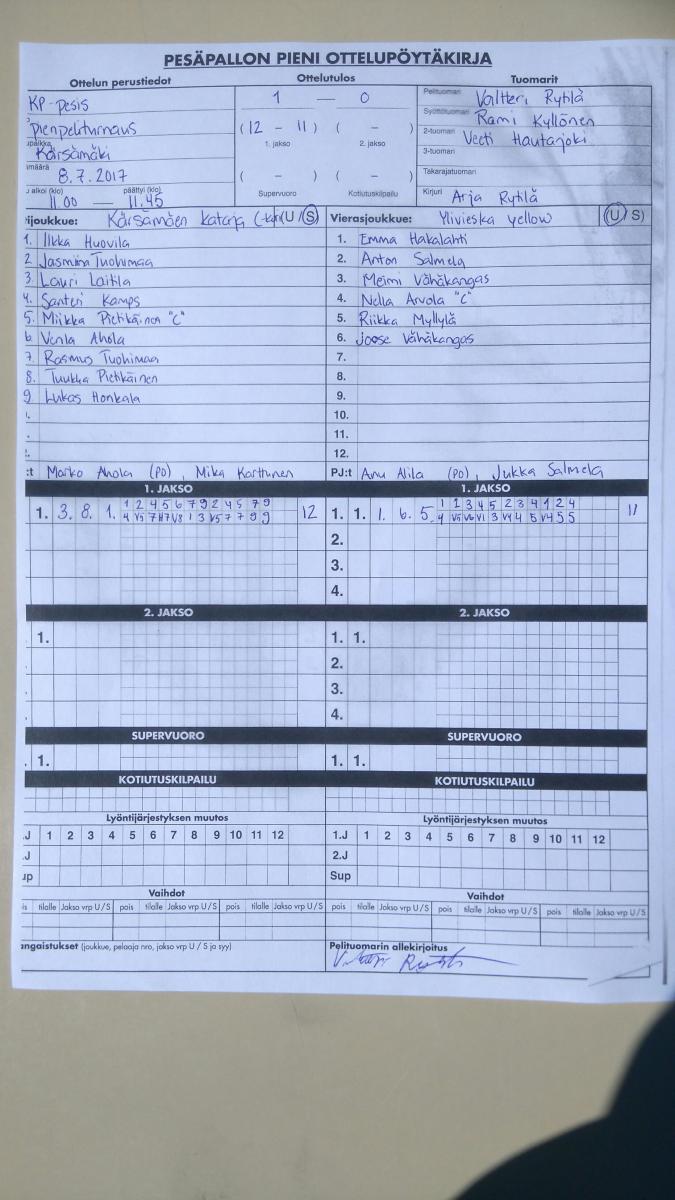 PESÄPALLON PIENI OTTELUPÖYTÄKIRJA
Ottelun perustiedot
KP-pesis
pienpeliturnaus
Kärsämäki
8.7.2017
alkoi (klo) päättyi (klo)
11.00 — 11.45
Ottelutulos
1 — 0
(12 - 11) ( - )
1. jakso 2. jakso
( - ) ( - )
Supervuoro Kotiutuskilpailu
Tuomarit
Pelituomari Valtteri Rytilä
Syöttötuomari Rami Kyllönen
2-tuomari Veeti Hautarjoki
3-tuomari
Takarajatuomari
Kirjuri Arja Rytilä
ijoukkue: Kärsämäen Kataja (U/S)
1. Ilkka Huovila
2 Jasmiina Tuohimaa
3 Lauri Laitila
4. Santeri Kamps
5. Miikka Pietikäinen "C"
6 Venla Ahola
7. Rasmus Tuohimaa
8. Tuukka Pietikäinen
9 Lukas Honkala
:t Marko Ahola (PO), Mika Karttunen
Vierasjoukkue: Ylivieska yellow (U/S)
1. Emma Hakalahti
2. Anton Salmela
3. Meimi Vähäkangas
4. Nella Arvola "C"
5. Riikka Myllylä
6. Joose Vähäkangas
7.
8.
9.
10.
11.
12.
PJ:t Anu Alila (PO), Jukka Salmela
1. JAKSO
1. 3. 8. 1. 1 2 4 5 6 7 9 2 4 5 7 9 12
4 V5 7 H7 V8 1 3 V5 7 7 9 9
1. JAKSO
1. 1. 1. 6. 5. 1 2 3 4 5 2 3 4 1 2 4 11
4 V5 V6 V1 3 V4 4 5 V4 5 5
2.
3.
4.
2. JAKSO
1.
2. JAKSO
1. 1.
2.
3.
4.
SUPERVUORO
1.
SUPERVUORO
1. 1.
KOTIUTUSKILPAILU
KOTIUTUSKILPAILU
Lyöntijärjestyksen muutos
.J 1 2 3 4 5 6 7 8 9 10 11 12
.J
up
Lyöntijärjestyksen muutos
1.J 1 2 3 4 5 6 7 8 9 10 11 12
2.J
Sup
Vaihdot
is tilalle Jakso vrp U/S pois tilalle Jakso vrp U/S pois tilalle Jakso vrp U/S
Vaihdot
pois tilalle Jakso vrp U/S pois tilalle Jakso vrp U/S pois tilalle Jakso vrp U/S
angaistukset (joukkue, pelaaja nro, jakso vrp U / S ja syy)
Pelituomarin allekirjoitus